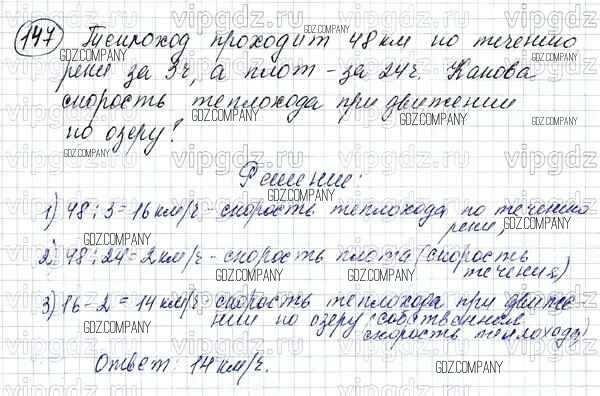 147 Теплоход проходит 48 км по течению
реки за 3ч, а плот - за 24ч. Какова
скорость теплохода при движении
по озеру?
Решение:
1) 48 : 3 = 16 км/ч - скорость теплохода по течению
реки,
2) 48 : 24 = 2 км/ч - скорость плота (скорость
течения)
3) 16 - 2 = 14 км/ч скорость теплохода при движе-
нии по озеру (собственная
скорость теплохода)
Ответ: 14 км/ч.
vipgdz.ru
GDZ.COMPANY